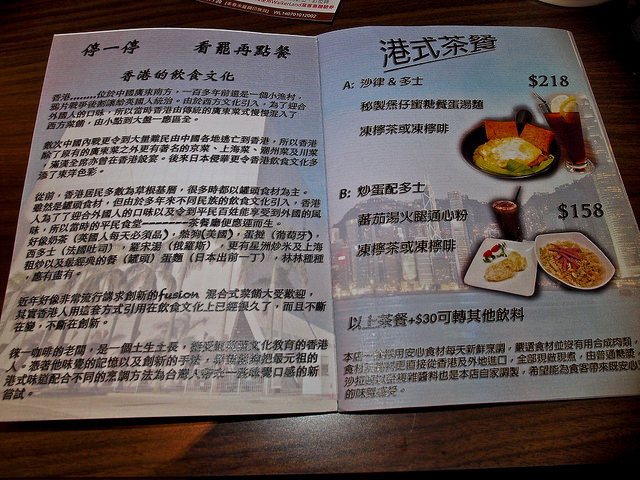 停一停 看罷再點餐
香港的飲食文化
香港........位於中國廣東南方，一百多年前還是一個小漁村，
鴉片戰爭後割讓給英國人統治。由於西方文化引入，為了迎合
外國人的口味，所以當時香港由傳統的廣東菜式慢慢混入了
西方菜餚，由小點到大盤一應區全。
數次中國內戰更令到大量難民由中國各地逃亡到香港，所以香港
除了原有的廣東菜之外更有著名的京菜、上海菜、潮州菜及川菜
後來日本侵華更令香港飲食文化多
添了東洋色彩。
從前，香港居民多數為草根基層，很多時都以罐頭食材為主。
雖然是罐頭食材，但由於多年來不同民族的飲食文化引入，香港
人為了了迎合外國人的口味以及令到平民百姓能享受到外國的風
味，所以當時的平民食堂--------茶餐廳便應運而生。
好像奶茶（英國人每天必須品），熱狗(美國)，蛋撻（葡萄牙)，
西多士（法國吐司），羅宋湯（俄羅斯），更有星洲炒米及上海
粗炒以及最經典的餐（罐頭）蛋麵（日本出前一丁），林林種種
應有盡有。
近年好像非常流行講求創新的fusion 混合式菜餚大受歡迎，
其實香港人用這套方式引用在飲食文化上已經很久了，而且不斷
在變，不斷在創新。
咖啡的老闆，是一個土生土長，
人。憑著他味覺的記憶以及創新的手法，
港式味道配合不同的烹調方法為台灣人帶來一些味覺口感的新
嘗試。
港式茶餐
A: 沙律 & 多士 $218
秘製無仔蜜糖餐蛋湯麵
凍檸茶或凍檸啡
B: 炒蛋配多士 $158
蕃茄湯火腿通心粉
凍檸茶或凍檸啡
以上茶餐+$30可轉其他飲料
本店一全採用安心食材每天新鮮烹調，嚴選食材並沒有用合成肉類，
直接從香港及外地進口，全部現做現煮，由普通醬漿
沙拉醬以至複雜醬料也是本店自家調製，希望能為食客帶來既安心
的味覺感受。